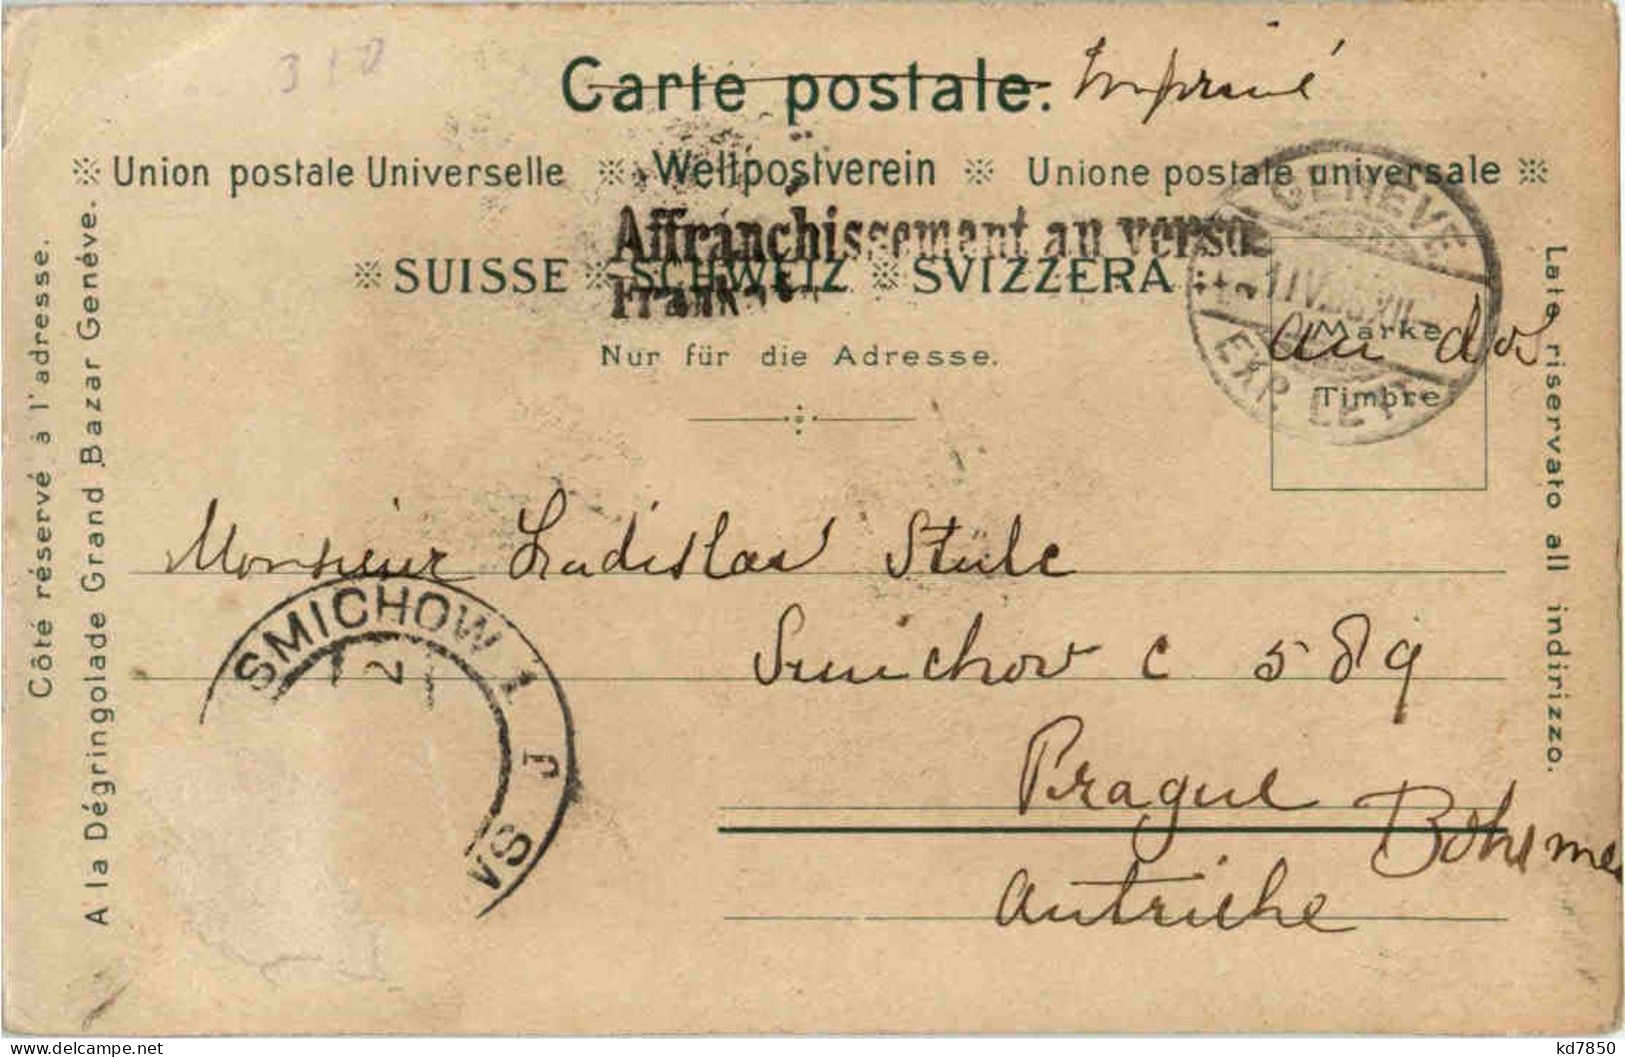 310
Carte postale. Imprimé
Union postale Universelle Weltpostverein Unione postale universale
Affranchissement au verso
SUISSE SCHWEIZ SVIZZERA
Frank
Nur für die Adresse.
GENÈVE
EXP. LET.
Marke
Timbre
au dos
Côté réservé à l'adresse.
A la Dégringolade Grand Bazar Genève.
Lato riservato all indirizzo.
Monsieur Ladislas Stülc
Smichov c 589
Prague Bohème
Autriche
SMICHOW 1
kd7850